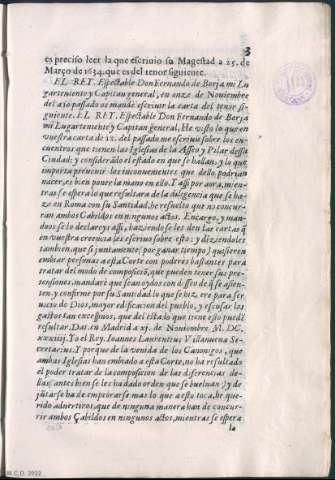 3
es preciso leer la que escriuio su Magestad a 25. de
Março de 1634. que es del tenor siguiente.
EL REY. Espectable Don Fernando de Borja mi Lu
garteniente y Capitan general, en onze de Nouiembre
del año passado os mandè escriuir la carta del tenor si-
guiente. EL REY. Espectable Don Fernando de Borja
mi Lugarteniente y Capitan General, He visto lo que en
vuestra carta de 17. del passado me escriuis sobre los en
cuentros que tienen las Iglesias de la Asseo y Pilar dessa
Ciudad; y considerãdo el estado en que se hallan, y lo que
importa preuenir los inconuenientes que dello podrian
nacer, es bien poner la mano en ello. Y assi por aora, mien-
tras se espera lo que resultara de la diligencia que se ha-
ze en Roma con su Santidad, he resuelto que no concur-
ran ambos Cabildos en ningunos actos. Encargo, y man-
doos se lo declareys assi, haziendo se les den las cartas q̃
en vuestra creencia les escriuo sobre esto: y diziendoles
tambien, que si juntamente (por ganar tiempo) quisieren
embiar personas a esta Corte con poderes bastantes para
tratar del modo de composiciõ, que pueden tener sus pre-
tensiones, mandarè que sean oydos con desseo de q̃ se assien-
ten y confirme por su Santidad lo que se hiziere para ser
uicio de Dios, mayor edificacion del pueblo, y escusar los
gastos tan excessiuos, que del titulo que tiene esto puedẽ
resultar. Dat. en Madrid a xj. de Nouiembre M. DC.
xxxiij. Yo el Rey. Ioannes Laurentius Villanueua Se-
cretarius. Y porque de la venida de los Canonigos, que
ambas Iglesias han embiado a esta Corte, no ha resultado
el poder tratar de la composicion de las diferencias de-
llas (antes bien se les ha dado orden que se bueluan) y de
jũtarse ha de empeorarse mas lo que a esto toca, he que-
rido aduertiros, que de ninguna manera han de concur-
rir ambos Cabildos en ningunos actos, mientras se espera
la
M.C.D. 2022